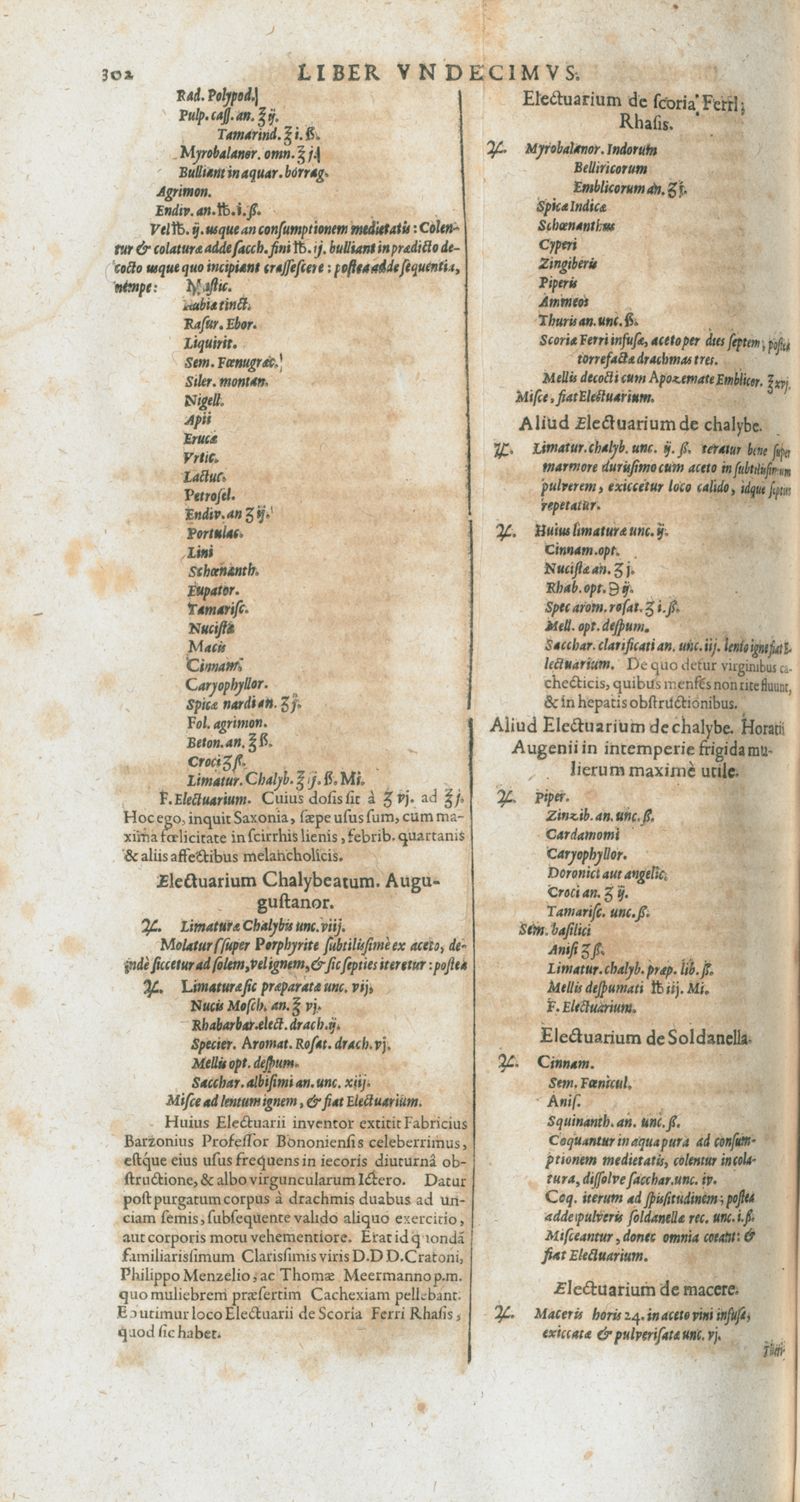 302 LIBER VNDECIMVS.
Rad. Polypod.
Pulp. caſſ. an. ℥ ij.
Tamarind. ℥ i. ß.
Myrobalanor. omn. ℥ j.
Bulliant in aquar. borrag.
Agrimon.
Endiv. an. ℔. i. ß.
Vel ℔. ij. usque an conſumptionem medietatis: Colen-
tur & colaturæ adde ſacch. fini ℔. ij. bulliant in prædicto de-
cocto usque quo incipiant craſſeſcere: poſtea adde ſequentia,
nempe: Maſtic.
Rubiæ tinct.
Raſur. Ebor.
Liquirit.
Sem. Fœnugræc.
Siler. montan.
Nigell.
Apii
Erucæ
Vrtic.
Lactuc.
Petroſel.
Endiv. an ʒ ij.
Portulac.
Lini
Schœnanth.
Eupator.
Tamariſc.
Nuciſtæ
Macis
Cinnam.
Caryophyllor.
Spicæ nardi an. ʒ j.
Fol. agrimon.
Beton. an. ʒ ß.
Croci ʒ ß.
Limatur. Chalyb. ℥ ij. ß. Mi.
F. Electuarium. Cuius doſis ſit à ʒ vj. ad ℥ j.
Hoc ego, inquit Saxonia, ſæpe uſus ſum, cum ma-
xima fœlicitate in ſcirrhis lienis, febrib. quartanis
& aliis affectibus melancholicis.
Electuarium Chalybeatum. Augu-
guſtanor.
♃. Limaturæ Chalybis unc. viij.
Molatur ſſuper Porphyrite ſubtiliſsimè ex aceto, de-
inde ſiccetur ad ſolem, vel ignem, & ſic ſepties iteretur: poſtea
♃. Limaturæ ſic præparatæ unc. vij.
Nucis Moſch. an. ʒ vj.
Rhabarbar. elect. drach. ij.
Specier. Aromat. Roſat. drach. vj.
Mellis opt. deſpum.
Sacchar. albiſsimi an. unc. xiij.
Miſce ad lentum ignem, & fiat Electuarium.
Huius Electuarii inventor extitit Fabricius
Barzonius Profeſſor Bononienſis celeberrimus,
eſtque eius uſus frequens in iecoris diuturnâ ob-
ſtructione, & albo virguncularum Ictero. Datur
poſt purgatum corpus à drachmis duabus ad un-
ciam ſemis, ſubſequente valido aliquo exercitio,
aut corporis motu vehementiore. Erat id quondā
familiarisſimum Clarisſimis viris D.D D. Cratoni,
Philippo Menzelio, ac Thomæ Meermanno p.m.
quo muliebrem præſertim Cachexiam pellebant.
Eo utimur loco Electuarii de Scoria Ferri Rhaſis,
quod ſic habet.
Electuarium de ſcoria Ferri
Rhaſis.
♃. Myrobalanor. Indorum
Belliricorum
Emblicorum an. ʒ j.
Spicæ Indicæ
Schœnanthus
Cyperi
Zingiberis
Piperis
Ammeos
Thuris an. unc. ß.
Scoriæ Ferri infuſæ, aceto per dies ſeptem, poſtea
torrefacta drachmas tres.
Mellis decocti cum Apozemate Emblicor. ℥ xvj.
Miſce, fiat Electuarium.
Aliud Electuarium de chalybe.
♃. Limatur. chalyb. unc. ij. ß. teratur bene ſuper
marmore duriſsimo cum aceto in ſubtiliſsimum
pulverem, exiccetur loco calido, idque ſepties
repetatur.
♃. Huius limaturæ unc. ij.
Cinnam. opt.
Nuciſtæ an. ʒ j.
Rhab. opt. ℈ ij.
Spec arom. roſat. ʒ i. ß.
Mell. opt. deſpum.
Sacchar. clarificati an. unc. iij. lento igne fiat E-
lectuarium. De quo detur virginibus ca-
checticis, quibus menſes non rite fluunt,
& in hepatis obſtructionibus.
Aliud Electuarium de chalybe. Horatii
Augenii in intemperie frigida mu-
lierum maximè utile.
♃. Piper.
Zinzib. an. unc. ß.
Cardamomi
Caryophyllor.
Doronici aut angelic.
Croci an. ʒ ij.
Tamariſc. unc. ß.
Sem. baſilici
Aniſi ʒ ß.
Limatur. chalyb. præp. lib. ß.
Mellis deſpumati ℔ iij. Mi.
F. Electuarium.
Electuarium de Soldanella.
♃. Cinnam.
Sem. Fœnicul.
Aniſ.
Squinanth. an. unc. ß.
Coquantur in aqua pura ad conſum-
ptionem medietatis, colentur in cola-
tura, diſſolve ſacchar. unc. iv.
Coq. iterum ad ſpiſſitudinem; poſtea
adde pulveris ſoldanellæ rec. unc. i. ß.
Miſceantur, donec omnia coeant: &
fiat Electuarium.
Electuarium de macere.
♃. Maceris horis 24. in aceto vini infuſæ,
exiccatæ & pulveriſatæ unc. vj.